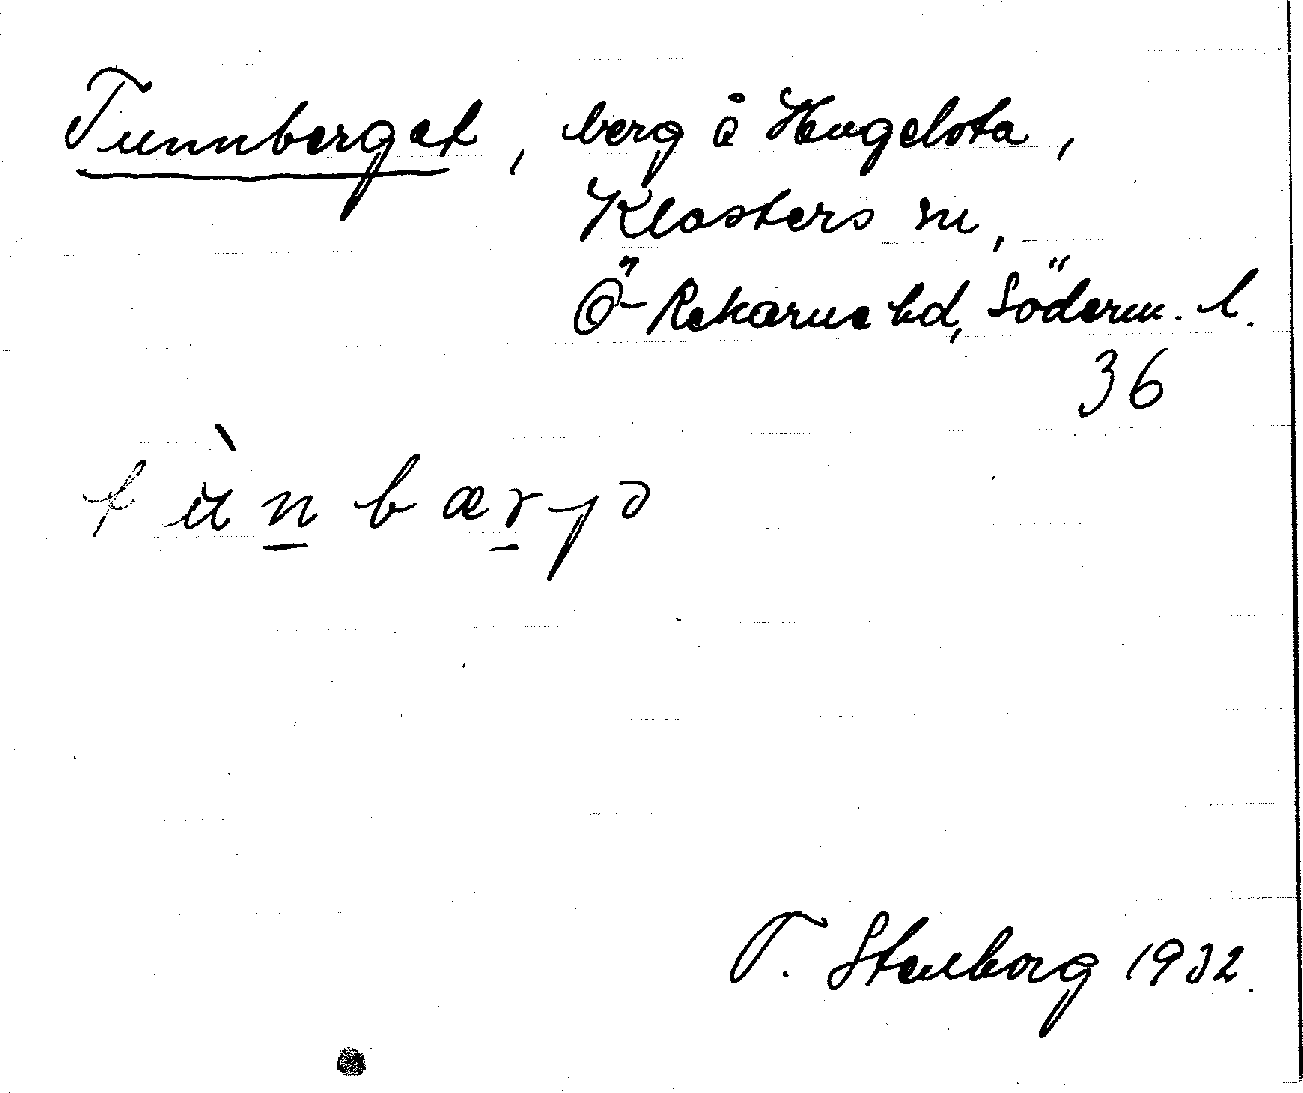 Tunnberget, berg å Hugelsta,
Klosters sn,
Ö-Rekarne hd, Söderm. l.
36
tùnbærjə
T. Stenborg 1932.